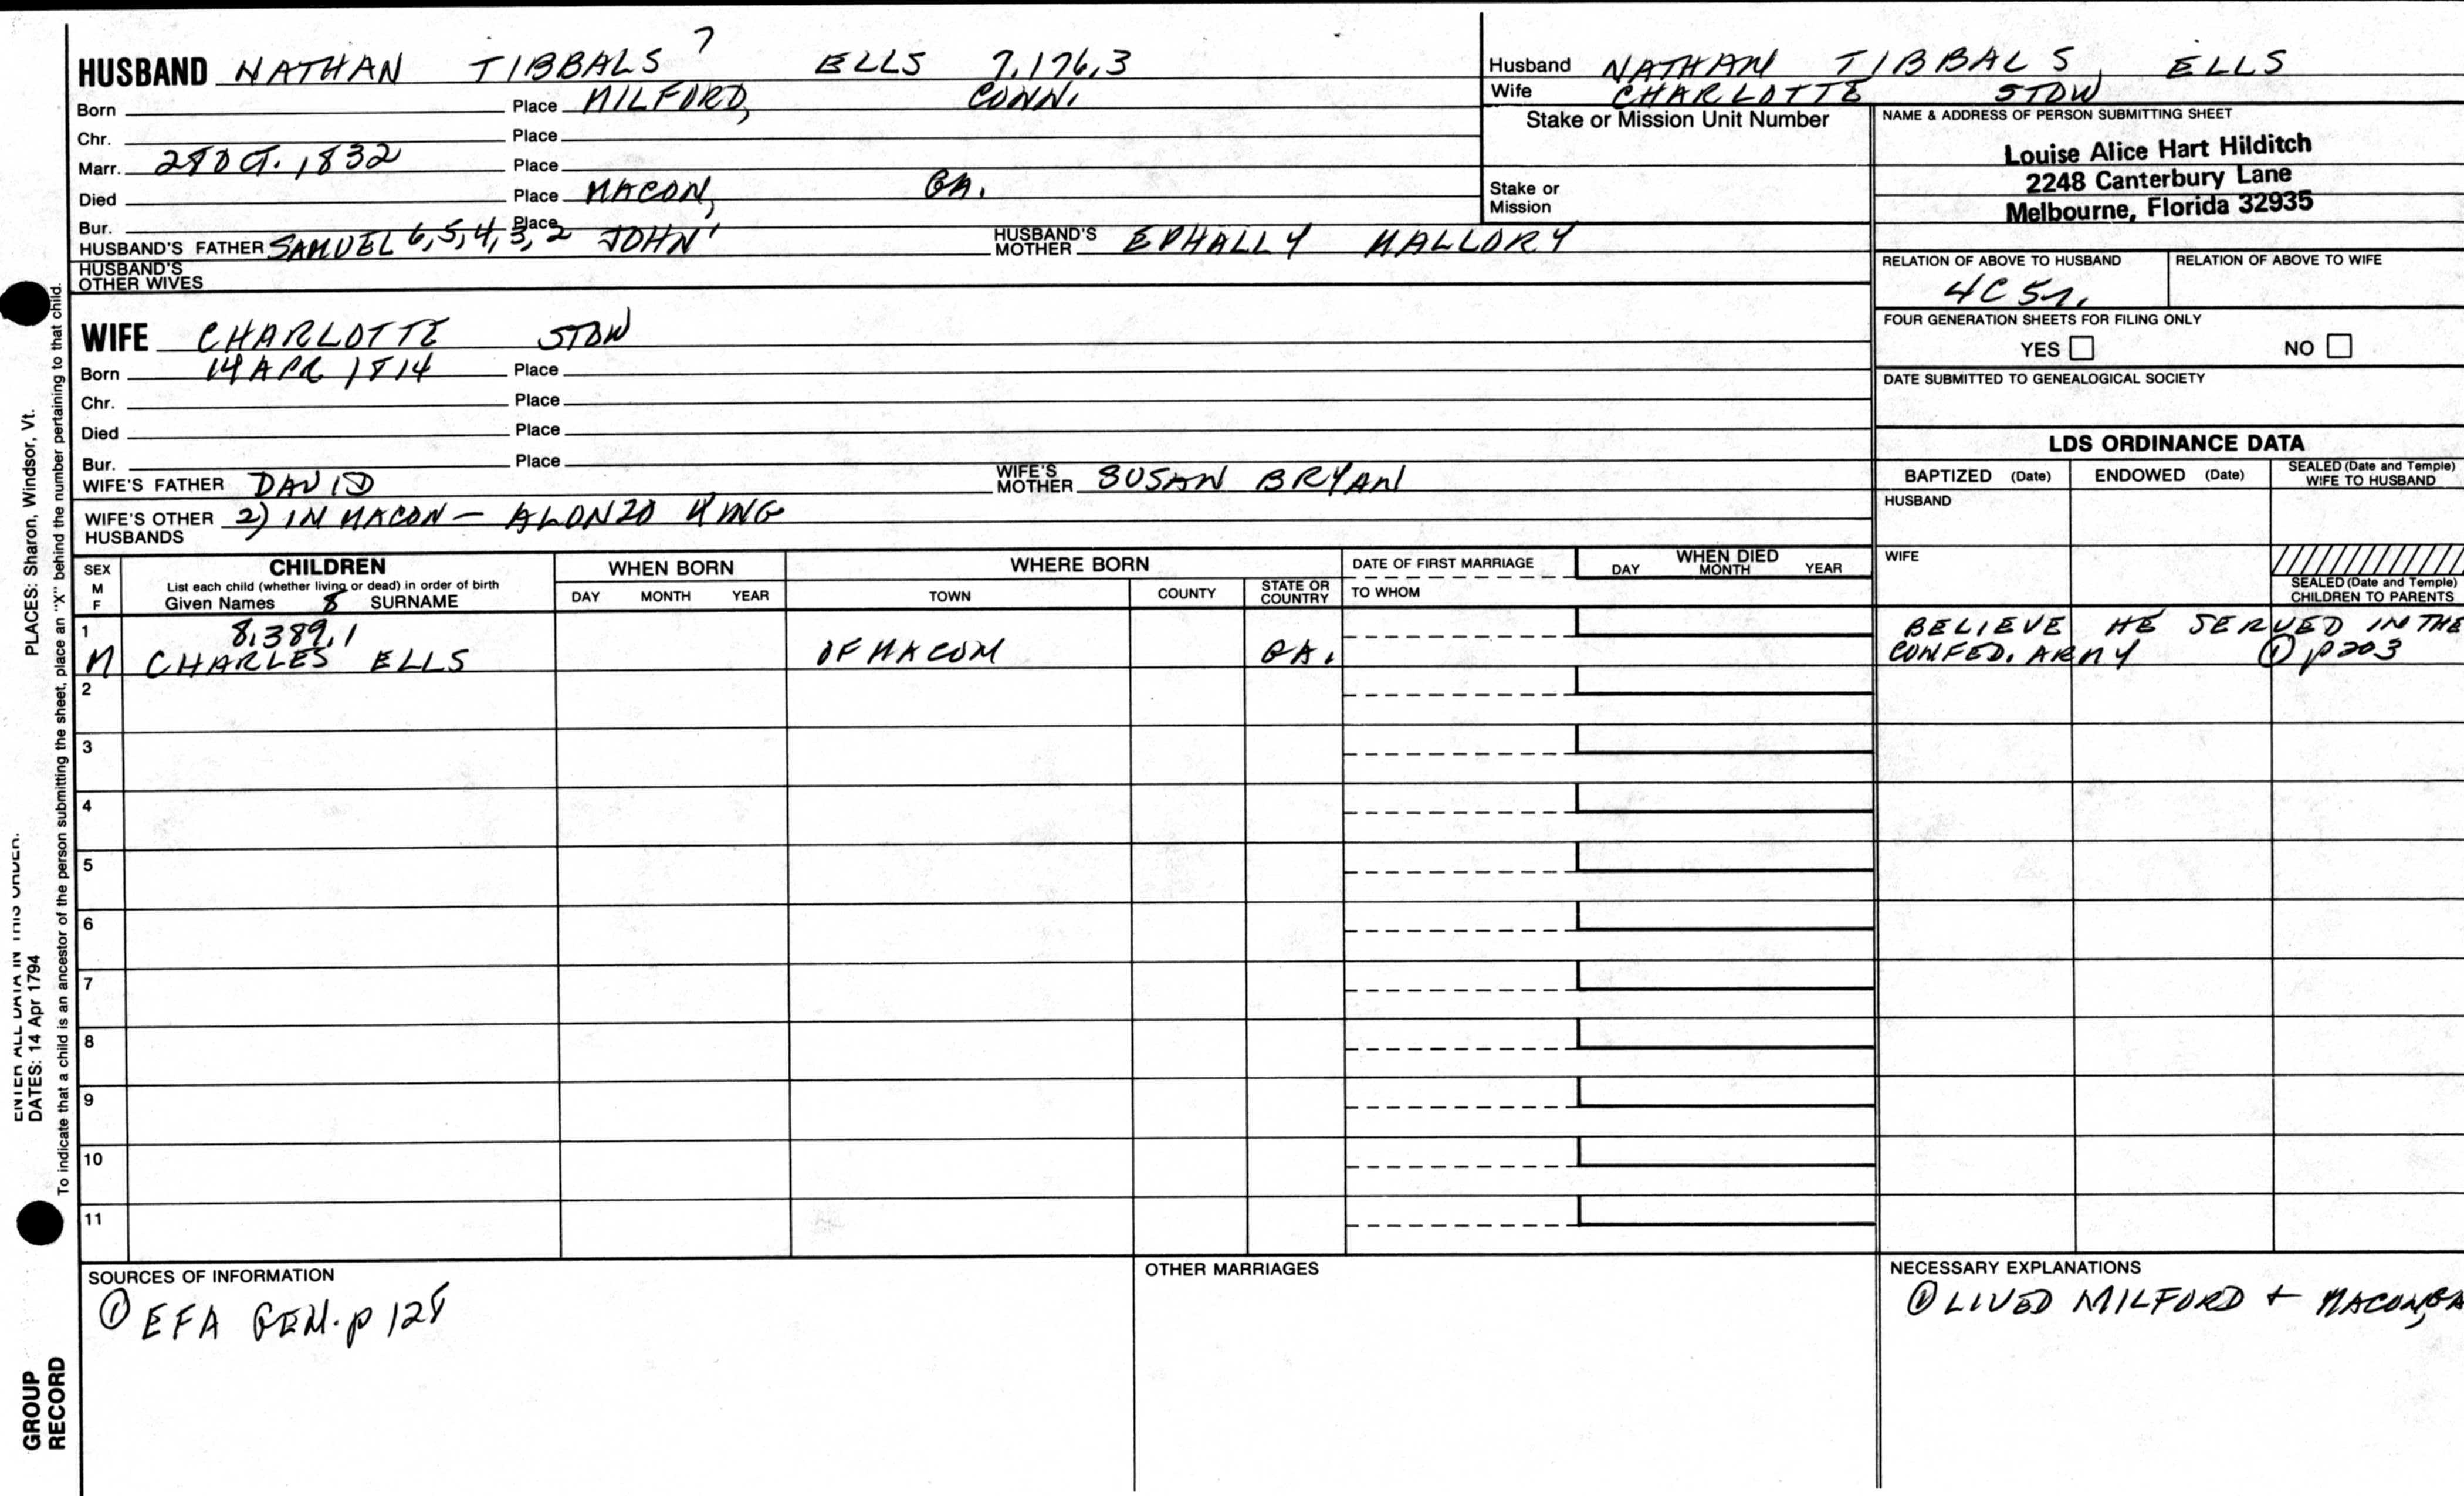 HUSBAND NATHAN TIBBALS 7 ELLS 7,176,3
Born Place MILFORD, CONN.
Chr. Place
Marr. 28 OCT. 1832 Place
Died Place MACON, GA.
Bur. Place
HUSBAND'S FATHER SAMUEL 6,5,4,3,2 JOHN 1 HUSBAND'S MOTHER EPHALLY MALLORY
HUSBAND'S OTHER WIVES
Husband NATHAN TIBBALS ELLS
Wife CHARLOTTE STOW
Stake or Mission Unit Number
Stake or Mission
NAME & ADDRESS OF PERSON SUBMITTING SHEET
Louise Alice Hart Hilditch
2248 Canterbury Lane
Melbourne, Florida 32935
RELATION OF ABOVE TO HUSBAND RELATION OF ABOVE TO WIFE
4C 5r.
FOUR GENERATION SHEETS FOR FILING ONLY
YES NO
DATE SUBMITTED TO GENEALOGICAL SOCIETY
WIFE CHARLOTTE STOW
Born 14 APR 1814 Place
Chr. Place
Died Place
Bur. Place
WIFE'S FATHER DAVID WIFE'S MOTHER SUSAN BRYAN
WIFE'S OTHER HUSBANDS 2) IN MACON - ALONZO KING
LDS ORDINANCE DATA
BAPTIZED (Date) ENDOWED (Date) SEALED (Date and Temple) WIFE TO HUSBAND
HUSBAND
WIFE
SEALED (Date and Temple) CHILDREN TO PARENTS
SEX M F
CHILDREN
List each child (whether living or dead) in order of birth
Given Names 8 SURNAME
WHEN BORN
DAY MONTH YEAR
WHERE BORN
TOWN COUNTY STATE OR COUNTRY
DATE OF FIRST MARRIAGE
TO WHOM
WHEN DIED
DAY MONTH YEAR
1 8,389,1
M CHARLES ELLS OF MACON GA.
BELIEVE HE SERVED IN THE
CONFED. ARMY ① p203
2
3
4
5
6
7
8
9
10
11
SOURCES OF INFORMATION
① EFA GEN. p 128
OTHER MARRIAGES
NECESSARY EXPLANATIONS
① LIVED MILFORD + MACON, GA
PLACES: Sharon, Windsor, Vt.
ENTER ALL DATA IN THIS ORDER:
DATES: 14 Apr 1794
To indicate that a child is an ancestor of the person submitting the sheet, place an "X" behind the number pertaining to that child.
GROUP
RECORD